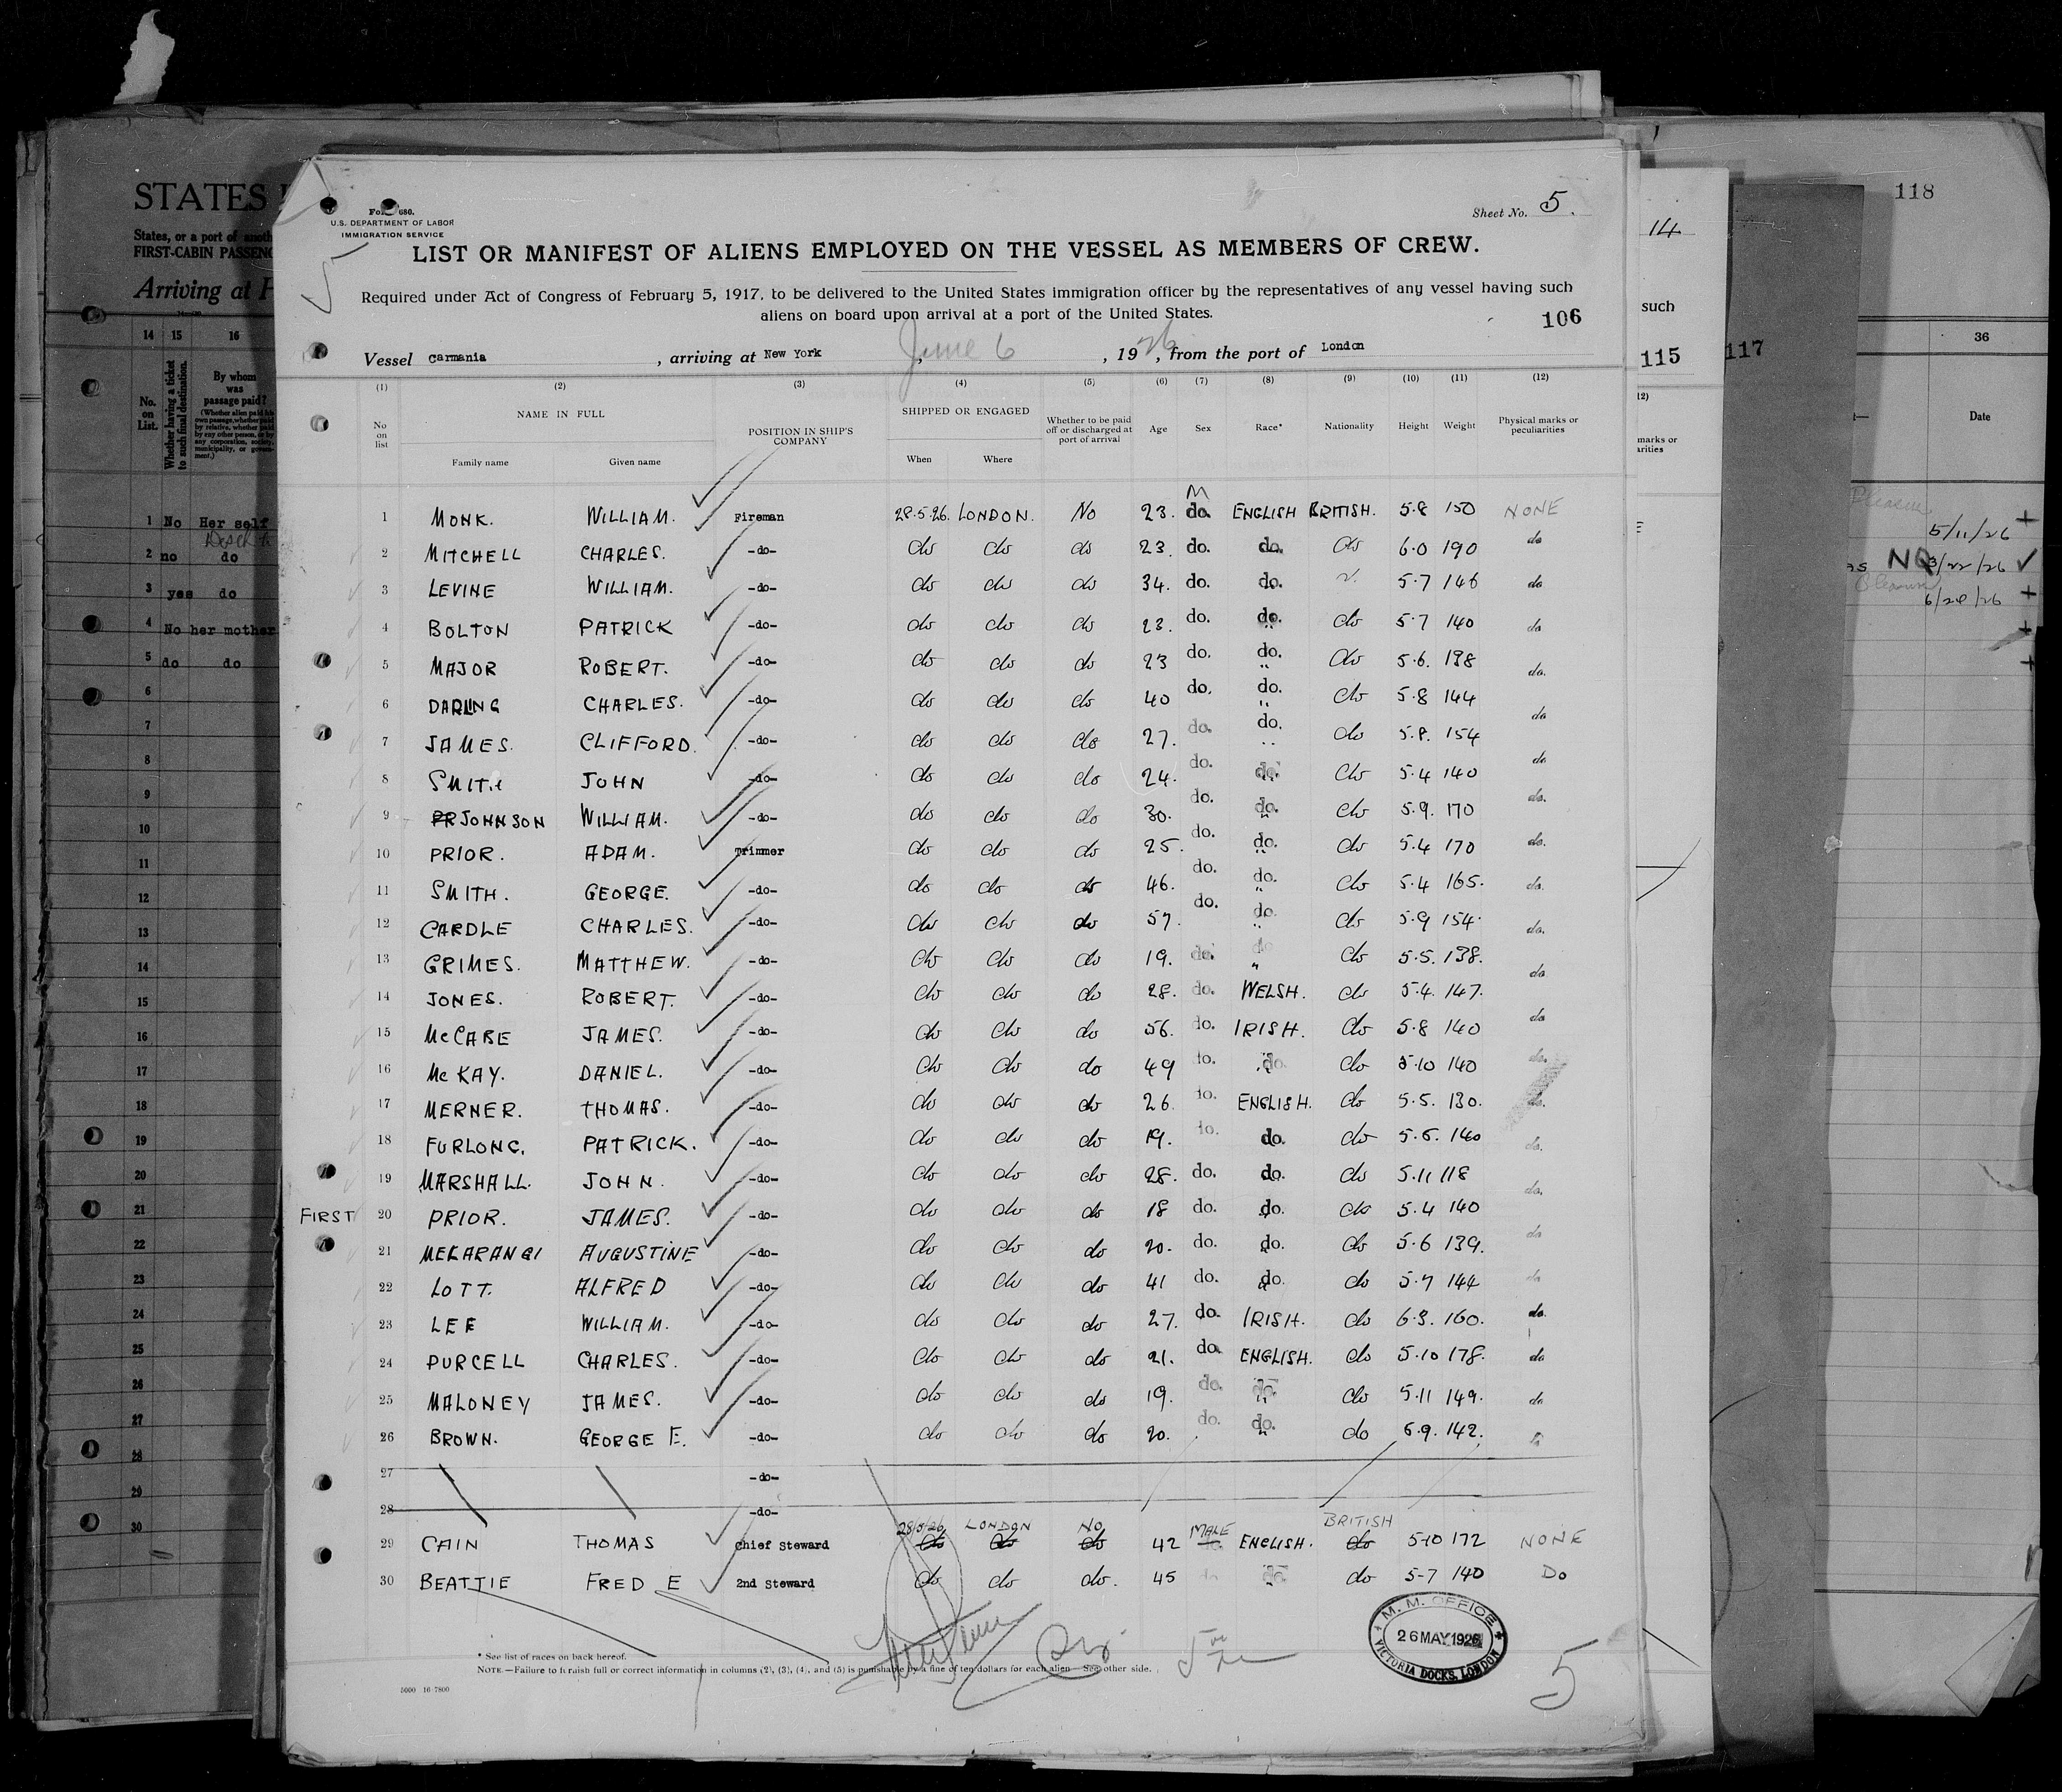 STATES
States, or a port of anoth
FIRST-CABIN PASSENG
Arriving at H
14 15 16
No. on List.
Whether having a ticket to such final destination.
By whom was passage paid?
1 No Her self
2 no do
3 yes do
4 No her mother
5 do do
6
7
8
9
10
11
12
13
14
15
16
17
18
19
20
21
22
23
24
25
26
27
28
29
30
Form 680.
U.S. DEPARTMENT OF LABOR
IMMIGRATION SERVICE
Sheet No. 5.
5
LIST OR MANIFEST OF ALIENS EMPLOYED ON THE VESSEL AS MEMBERS OF CREW.
Required under Act of Congress of February 5, 1917, to be delivered to the United States immigration officer by the representatives of any vessel having such
aliens on board upon arrival at a port of the United States.
106
Vessel Carmania, arriving at New York, June 6, 1926, from the port of London
(1) (2) (3) (4) (5) (6) (7) (8) (9) (10) (11) (12)
No on list
NAME IN FULL
Family name Given name
POSITION IN SHIP'S COMPANY
SHIPPED OR ENGAGED
When Where
Whether to be paid off or discharged at port of arrival
Age Sex Race* Nationality Height Weight
Physical marks or peculiarities
M
1 MONK. WILLIAM. Fireman 28.5.26. LONDON. No 23. do. ENGLISH BRITISH. 5.8 150 NONE
2 MITCHELL CHARLES. -do- do do do 23. do. do. do 6.0 190 do
3 LEVINE WILLIAM. -do- do do do 34. do. do. 5.7 146 do
4 BOLTON PATRICK -do- do do do 23. do. do. do 5.7 140 do
5 MAJOR ROBERT. -do- do do do 23 do. do. do 5.6. 138 do.
6 DARLING CHARLES. -do- do do do 40 do. do. do 5.8 144 do
7 JAMES. CLIFFORD. -do- do do do 27. do. do. do 5.8. 154 do
8 SMITH JOHN -do- do do do 24. do. do. do 5.4 140 do.
9 PR JOHNSON WILLIAM. -do- do do do 30. do. do. do 5.9. 170 do.
10 PRIOR. ADAM. Trimmer do do do 25. do. do. do 5.4 170 do.
11 SMITH. GEORGE. -do- do do do 46. do. do. do 5.4 165. do.
12 CARDLE CHARLES. -do- do do do 57. do. do. do 5.9 154. do.
13 GRIMES. MATTHEW. -do- do do do 19. do. do do 5.5. 138. do
14 JONES. ROBERT. -do- do do do 28. do. WELSH. do 5.4. 147. do
15 McCABE JAMES. -do- do do do 56. do. IRISH. do 5.8 140 do.
16 McKAY. DANIEL. -do- do do do 49 do. do. do 5.10 140 do.
17 MERNER. THOMAS. -do- do do do 26. do. ENGLISH. do 5.5. 130. do.
18 FURLONG. PATRICK. -do- do do do 19. do. do. do 5.6. 140 do.
19 MARSHALL. JOHN. -do- do do do 28. do. do. do 5.11 118 do.
FIRST 20 PRIOR. JAMES. -do- do do do 18 do. do. do 5.4 140 do
21 MEKARANGI AUGUSTINE -do- do do do 20. do. do. do 5.6 139. do
22 LOTT. ALFRED -do- do do do 41 do. do. do 5.7 144 do.
23 LEE WILLIAM. -do- do do do 27. do. IRISH. do 6.3. 160. do
24 PURCELL CHARLES. -do- do do do 21. do. ENGLISH. do 5.10 178. do
25 MALONEY JAMES. -do- do do do 19. do. do. do 5.11 149. do
26 BROWN. GEORGE E. -do- do do do 20. do. do. do 6.9. 142.
27 -do-
28 -do-
28/5/26 LONDON NO MALE BRITISH
29 CAIN THOMAS Chief Steward do do do 42 ENGLISH. do 5-10 172 NONE
30 BEATTIE FRED E 2nd Steward do do do. 45 do do. do 5-7 140 Do
* See list of races on back hereof.
NOTE.—Failure to furnish full or correct information in columns (2), (3), (4), and (5) is punishable by a fine of ten dollars for each alien. See other side.
5000 16-7800
M. M. OFFICE
26 MAY 1926
VICTORIA DOCKS, LONDON
5
14
such
115
12)
marks or
arities
117
118
36
Date
5/11/26
as NO 3/22/26
6/28/26